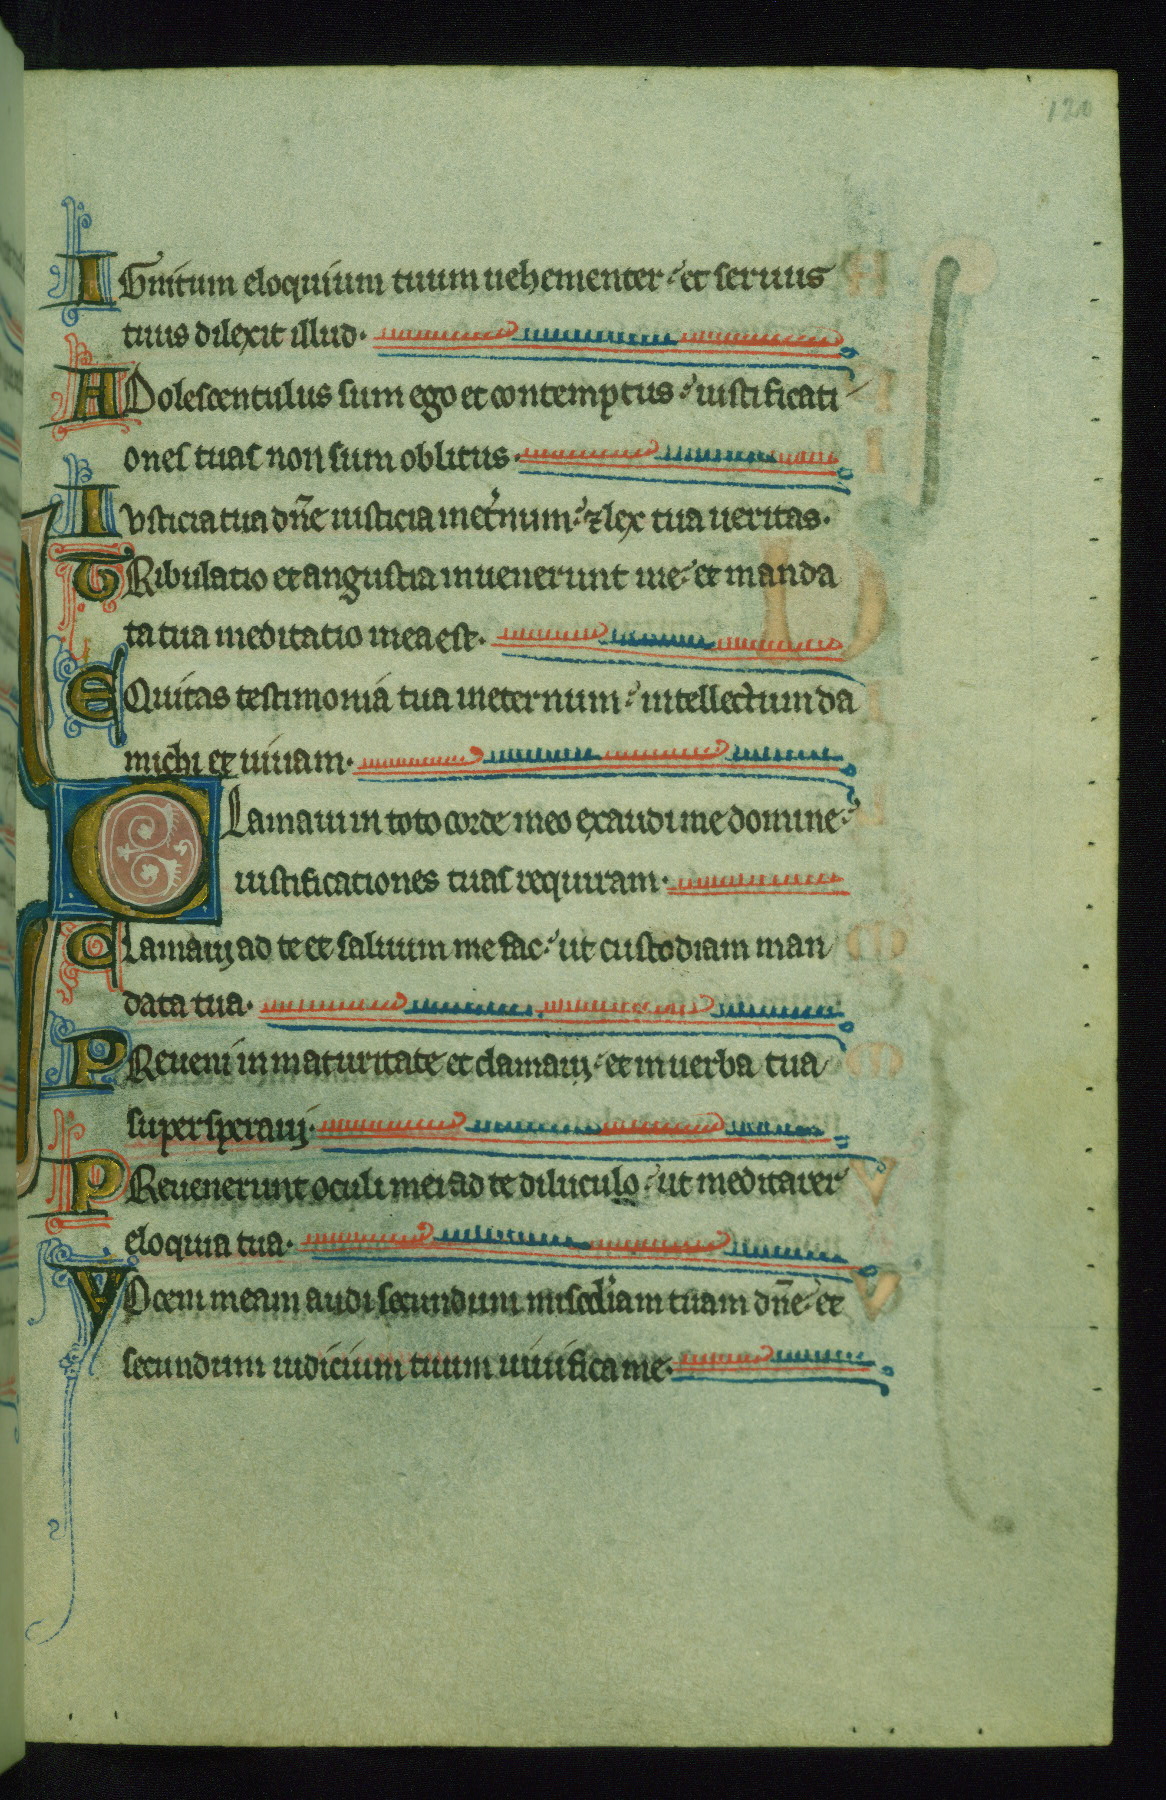 120
IGnitum eloquium tuum uehementer et seruus
tuus dilexit illud.
ADolescentulus sum ego et contemptus iustificati
ones tuas non sum oblitus.
IVsticia tua dn̄e iusticia inet͛num ⁊ lex tua ueritas.
TRibulatio et angustia inuenerunt me et manda
ta tua meditatio mea est.
EQuitas testimonia tua in eternum intellectum da
michi et uiuam.
CLamaui in toto corde meo exaudi me domine
iustificationes tuas requiram.
CLamauj ad te et saluum me fac ut custodiam man
data tua.
PReueni in maturitate et clamauj et in uerba tua
supersperauj.
PReuenerunt oculi mei ad te diluculo ut meditarer
eloquia tua.
VOcem meam audi secundum miscd̄iam tuam dn̄e et
secundum iudicium tuum uiuifica me.